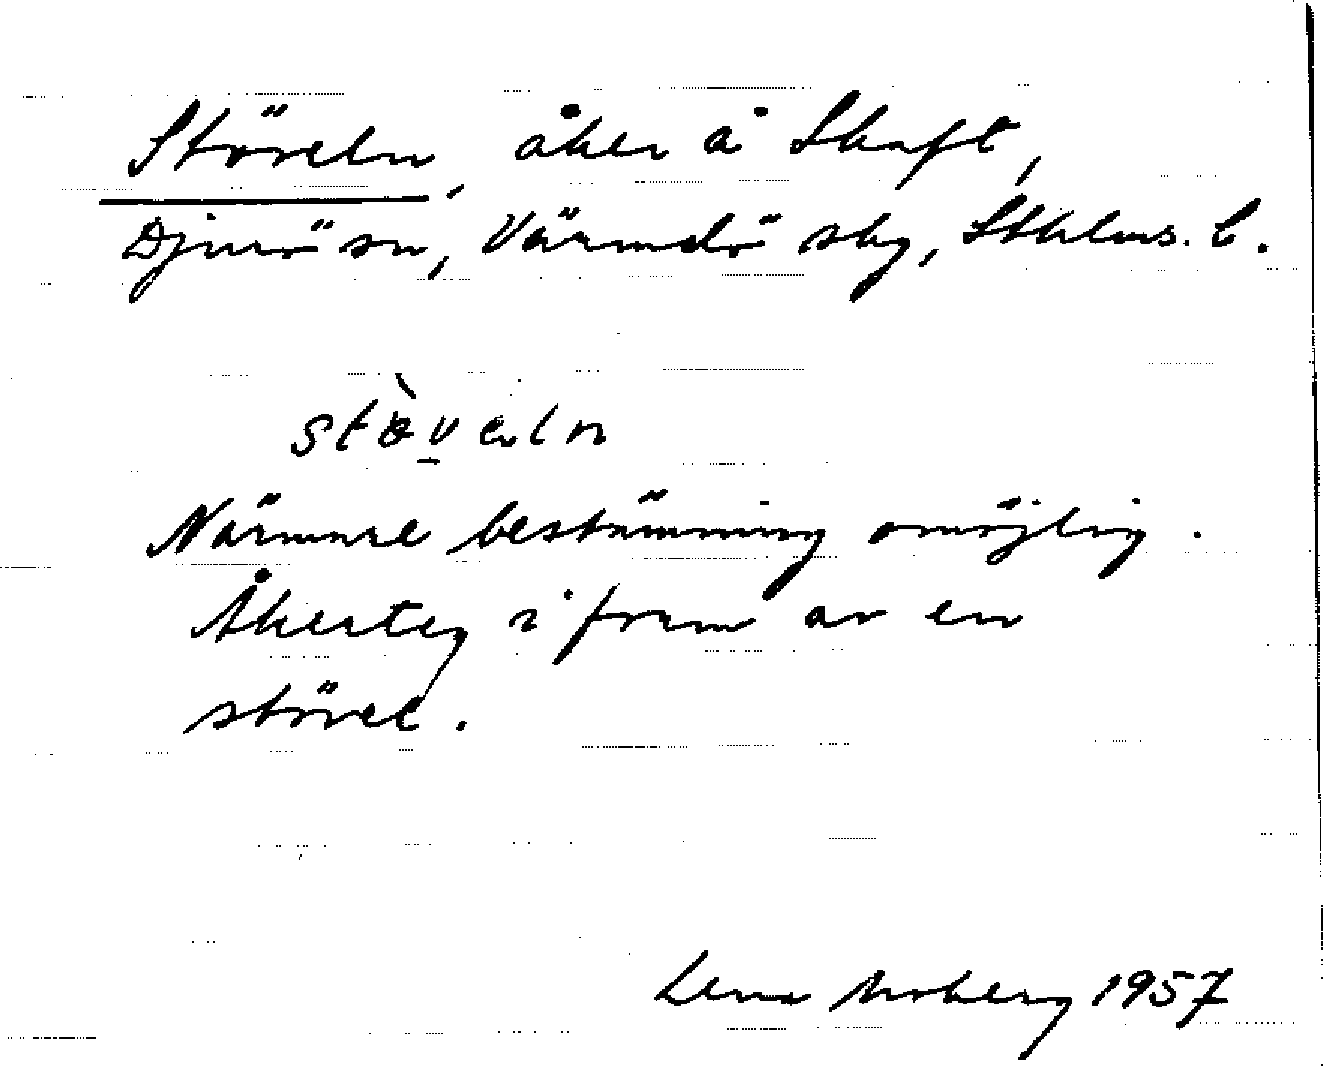 Stöveln, åker å Skaft,
Djurö sn, Värmdö skg, Sthlms. l.
stö̀vəln
Närmare bestämning omöjlig.
Åkerteg i form av en
stövel.
Lena Moberg 1957